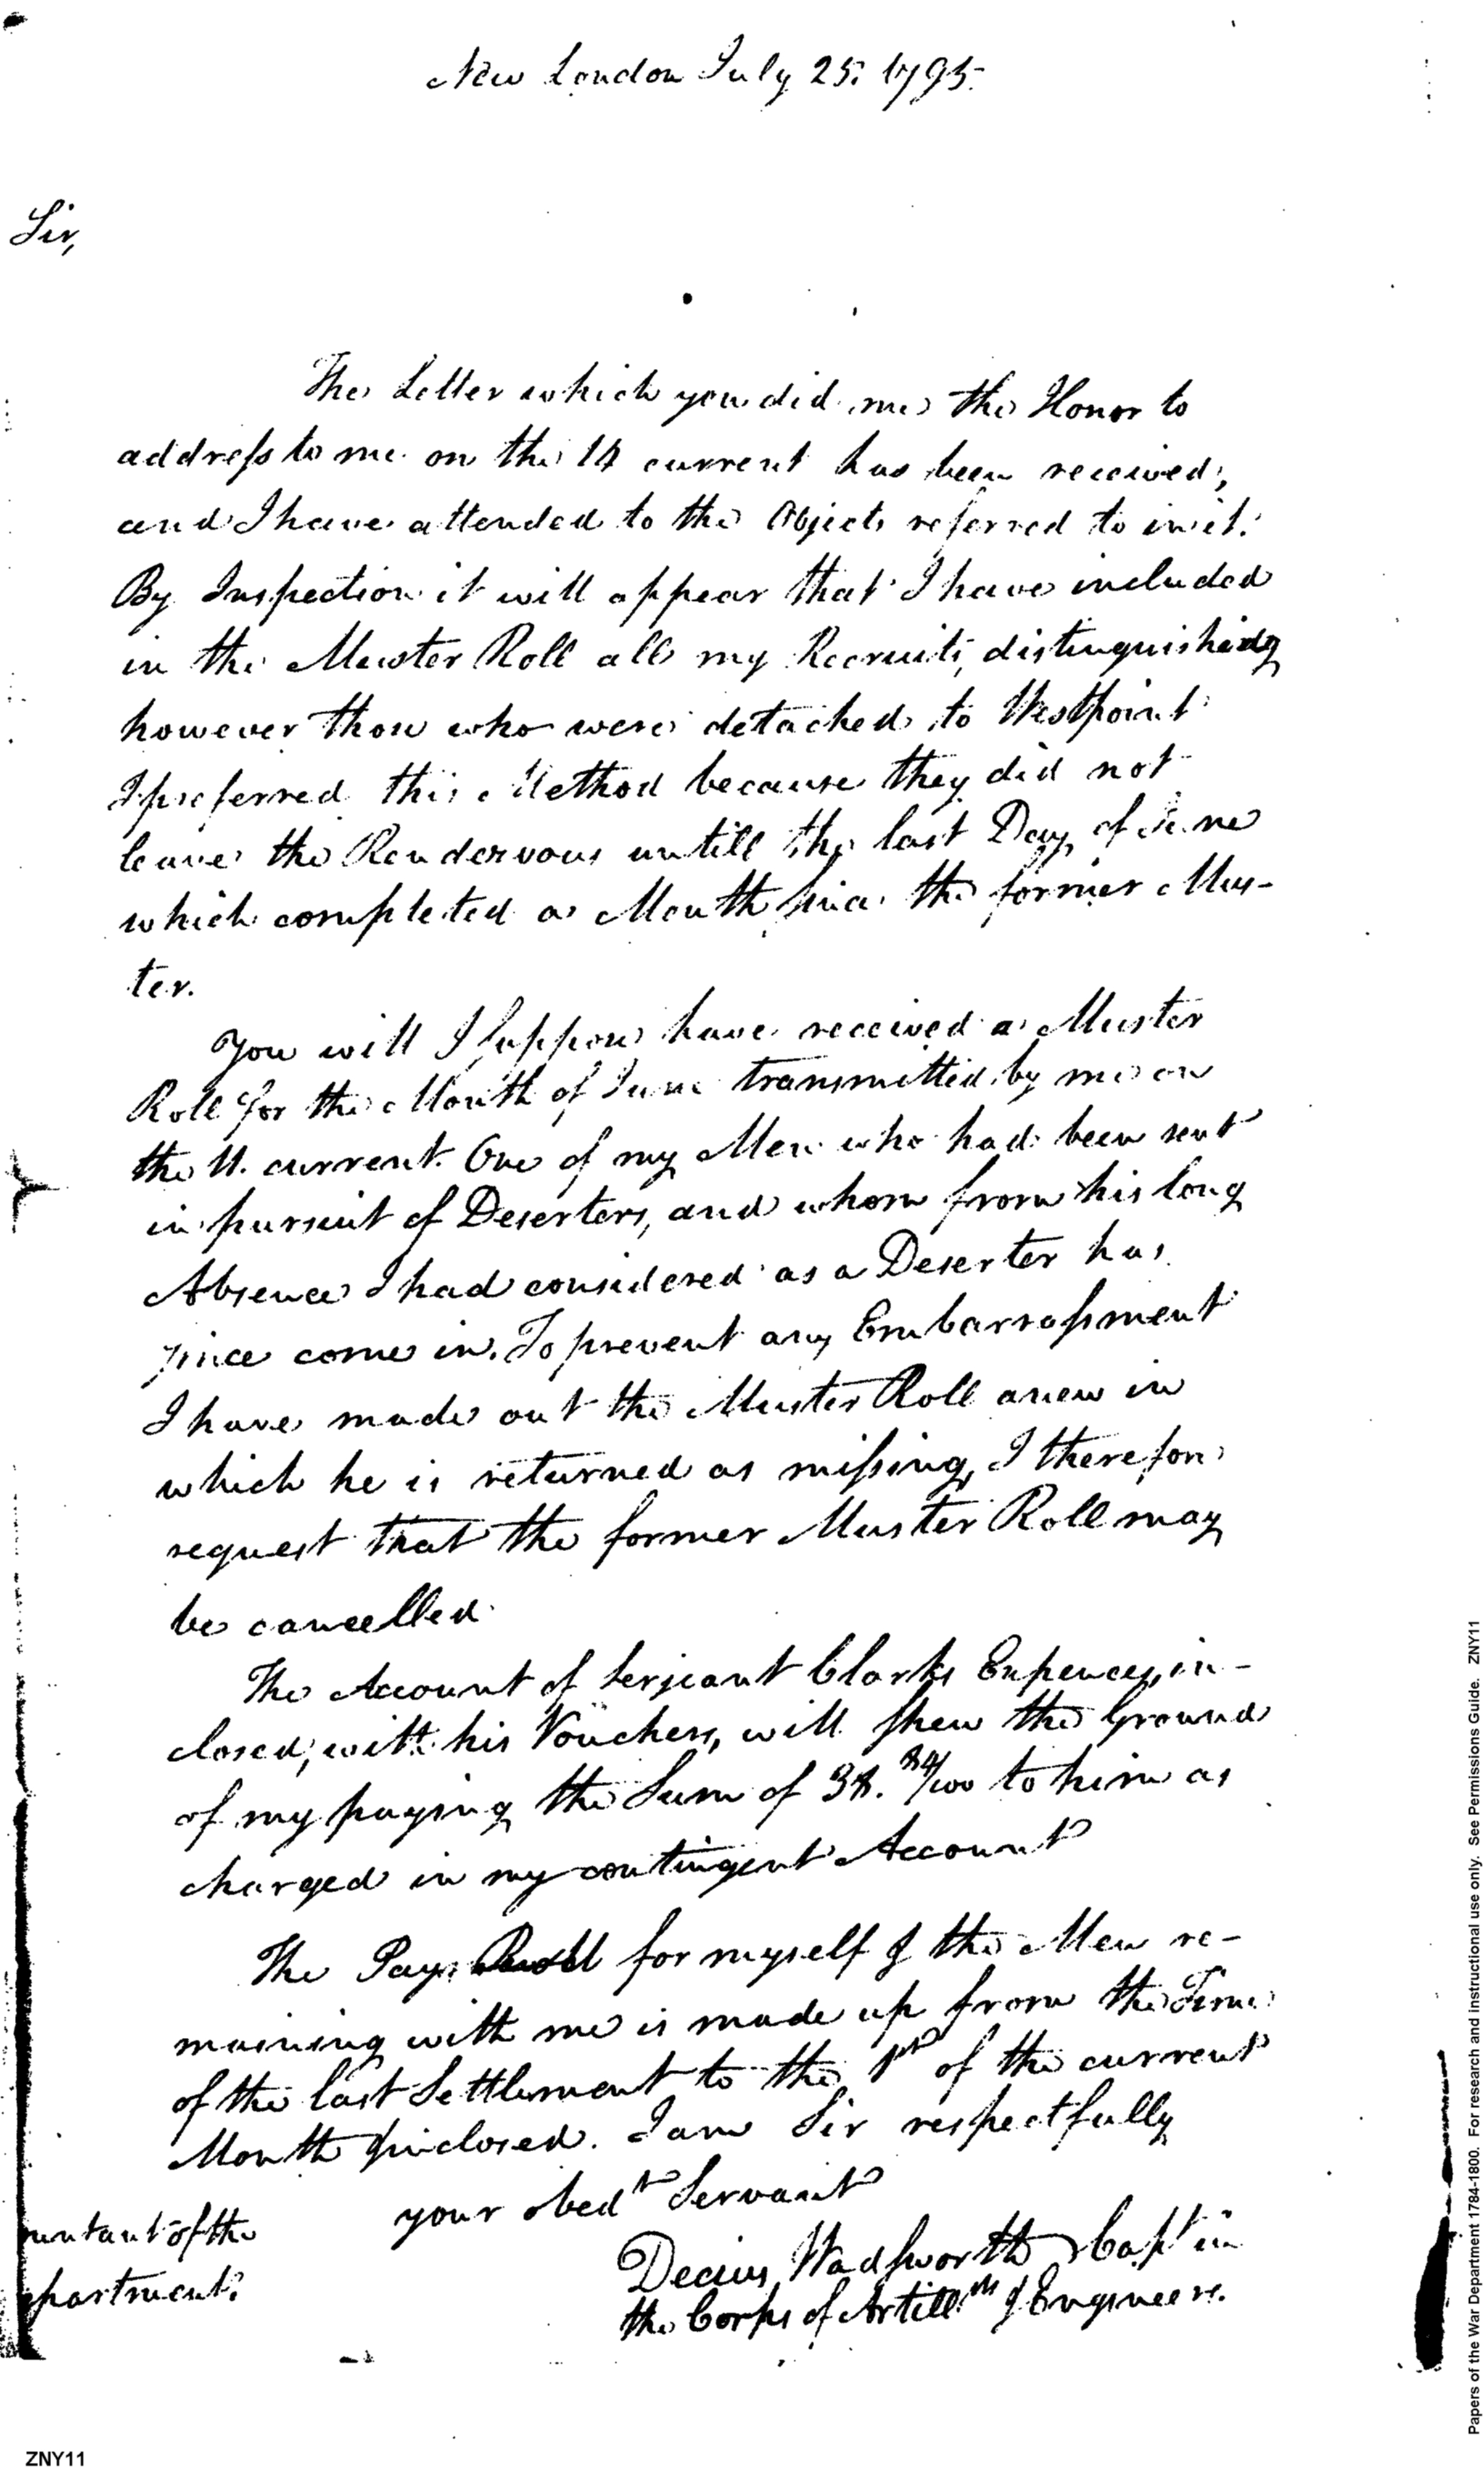 New London July 25. 1795.
Sir,
The Letter which you did me the Honor to
address to me on the 14 current has been received,
and I have attended to the Objects referred to in it.
By Inspection it will appear that I have included
in the Muster Roll all my Recruits, distinguishing
however those who were detached to Westpoint
I preferred this Method because they did not
leave the Rendezvous untill the last Day of June
which completed a Month since the former Mus-
ter.
You will I suppose have received a Muster
Roll for the Month of June transmitted by me on
the 11. current. One of my Men who had been sent
in pursuit of Deserters, and whom from his long
Absence I had considered as a Deserter has
since come in. To prevent any Embarrassment
I have made out the Muster Roll anew in
which he is returned as missing, I therefore
request that the former Muster Roll may
be cancelled.
The Account of Serjeant Clarks Expences, in-
closed, with his Vouchers, will shew the Ground
of my paying the Sum of 38. 34/100 to him as
charged in my contingent Account
The Pay Roll for myself & the Men re-
maining with me is made up from the Time
of the last Settlement to the 1st of the current
Month & inclosed. I am Sir respectfully
your obedt Servant
Decius Wadsworth Capt in
the Corps of Artillsts & Engineers.
untant of the
partment.
ZNY11
Papers of the War Department 1784-1800. For research and instructional use only. See Permissions Guide. ZNY11